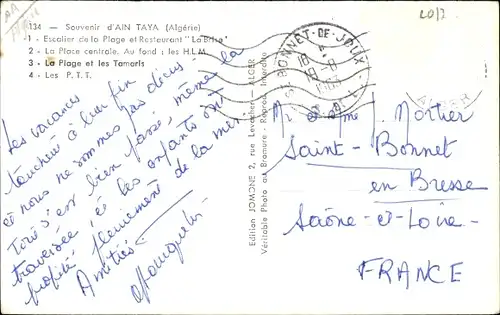 134 — Souvenir d'AIN TAYA (Algérie)
1 - Escalier de la Plage et Restaurant "La Brise"
2 - La Place centrale. Au fond : les H.L.M.
3 - La Plage et les Tamaris
4 - Les P.T.T.
Les vacances
touchent à leur fin
et nous ne sommes pas déçus.
Tout s'est bien passé, même la
traversée, et les enfants ont
profité pleinement de la mer
Amitiés
Edition JOMONE 2, rue Levacher - ALGER
Véritable Photo au Bromure - Reprod. Interdite
BONNET-DE-JOUX
18 H
19-8
ALGER
2012
Mr et Mme Mortier
Saint-Bonnet
en Bresse
Saône-et-Loire
FRANCE